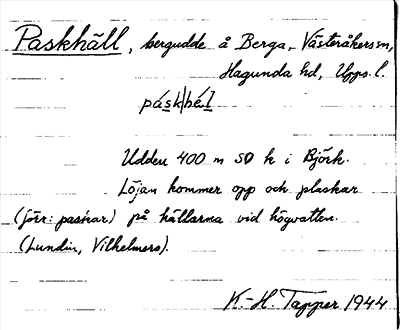 Paskhäll, bergudde å Berga, Västeråkers sn,
Hagunda hd, Upps. l.
páskhäl
Udden 400 m SO h i Björk.
Löjan kommer opp och plaskar
(förr: paskar) på hällarna vid högvatten.
(Lundin, Vilhelmsro).
K.-H. Tapper 1944